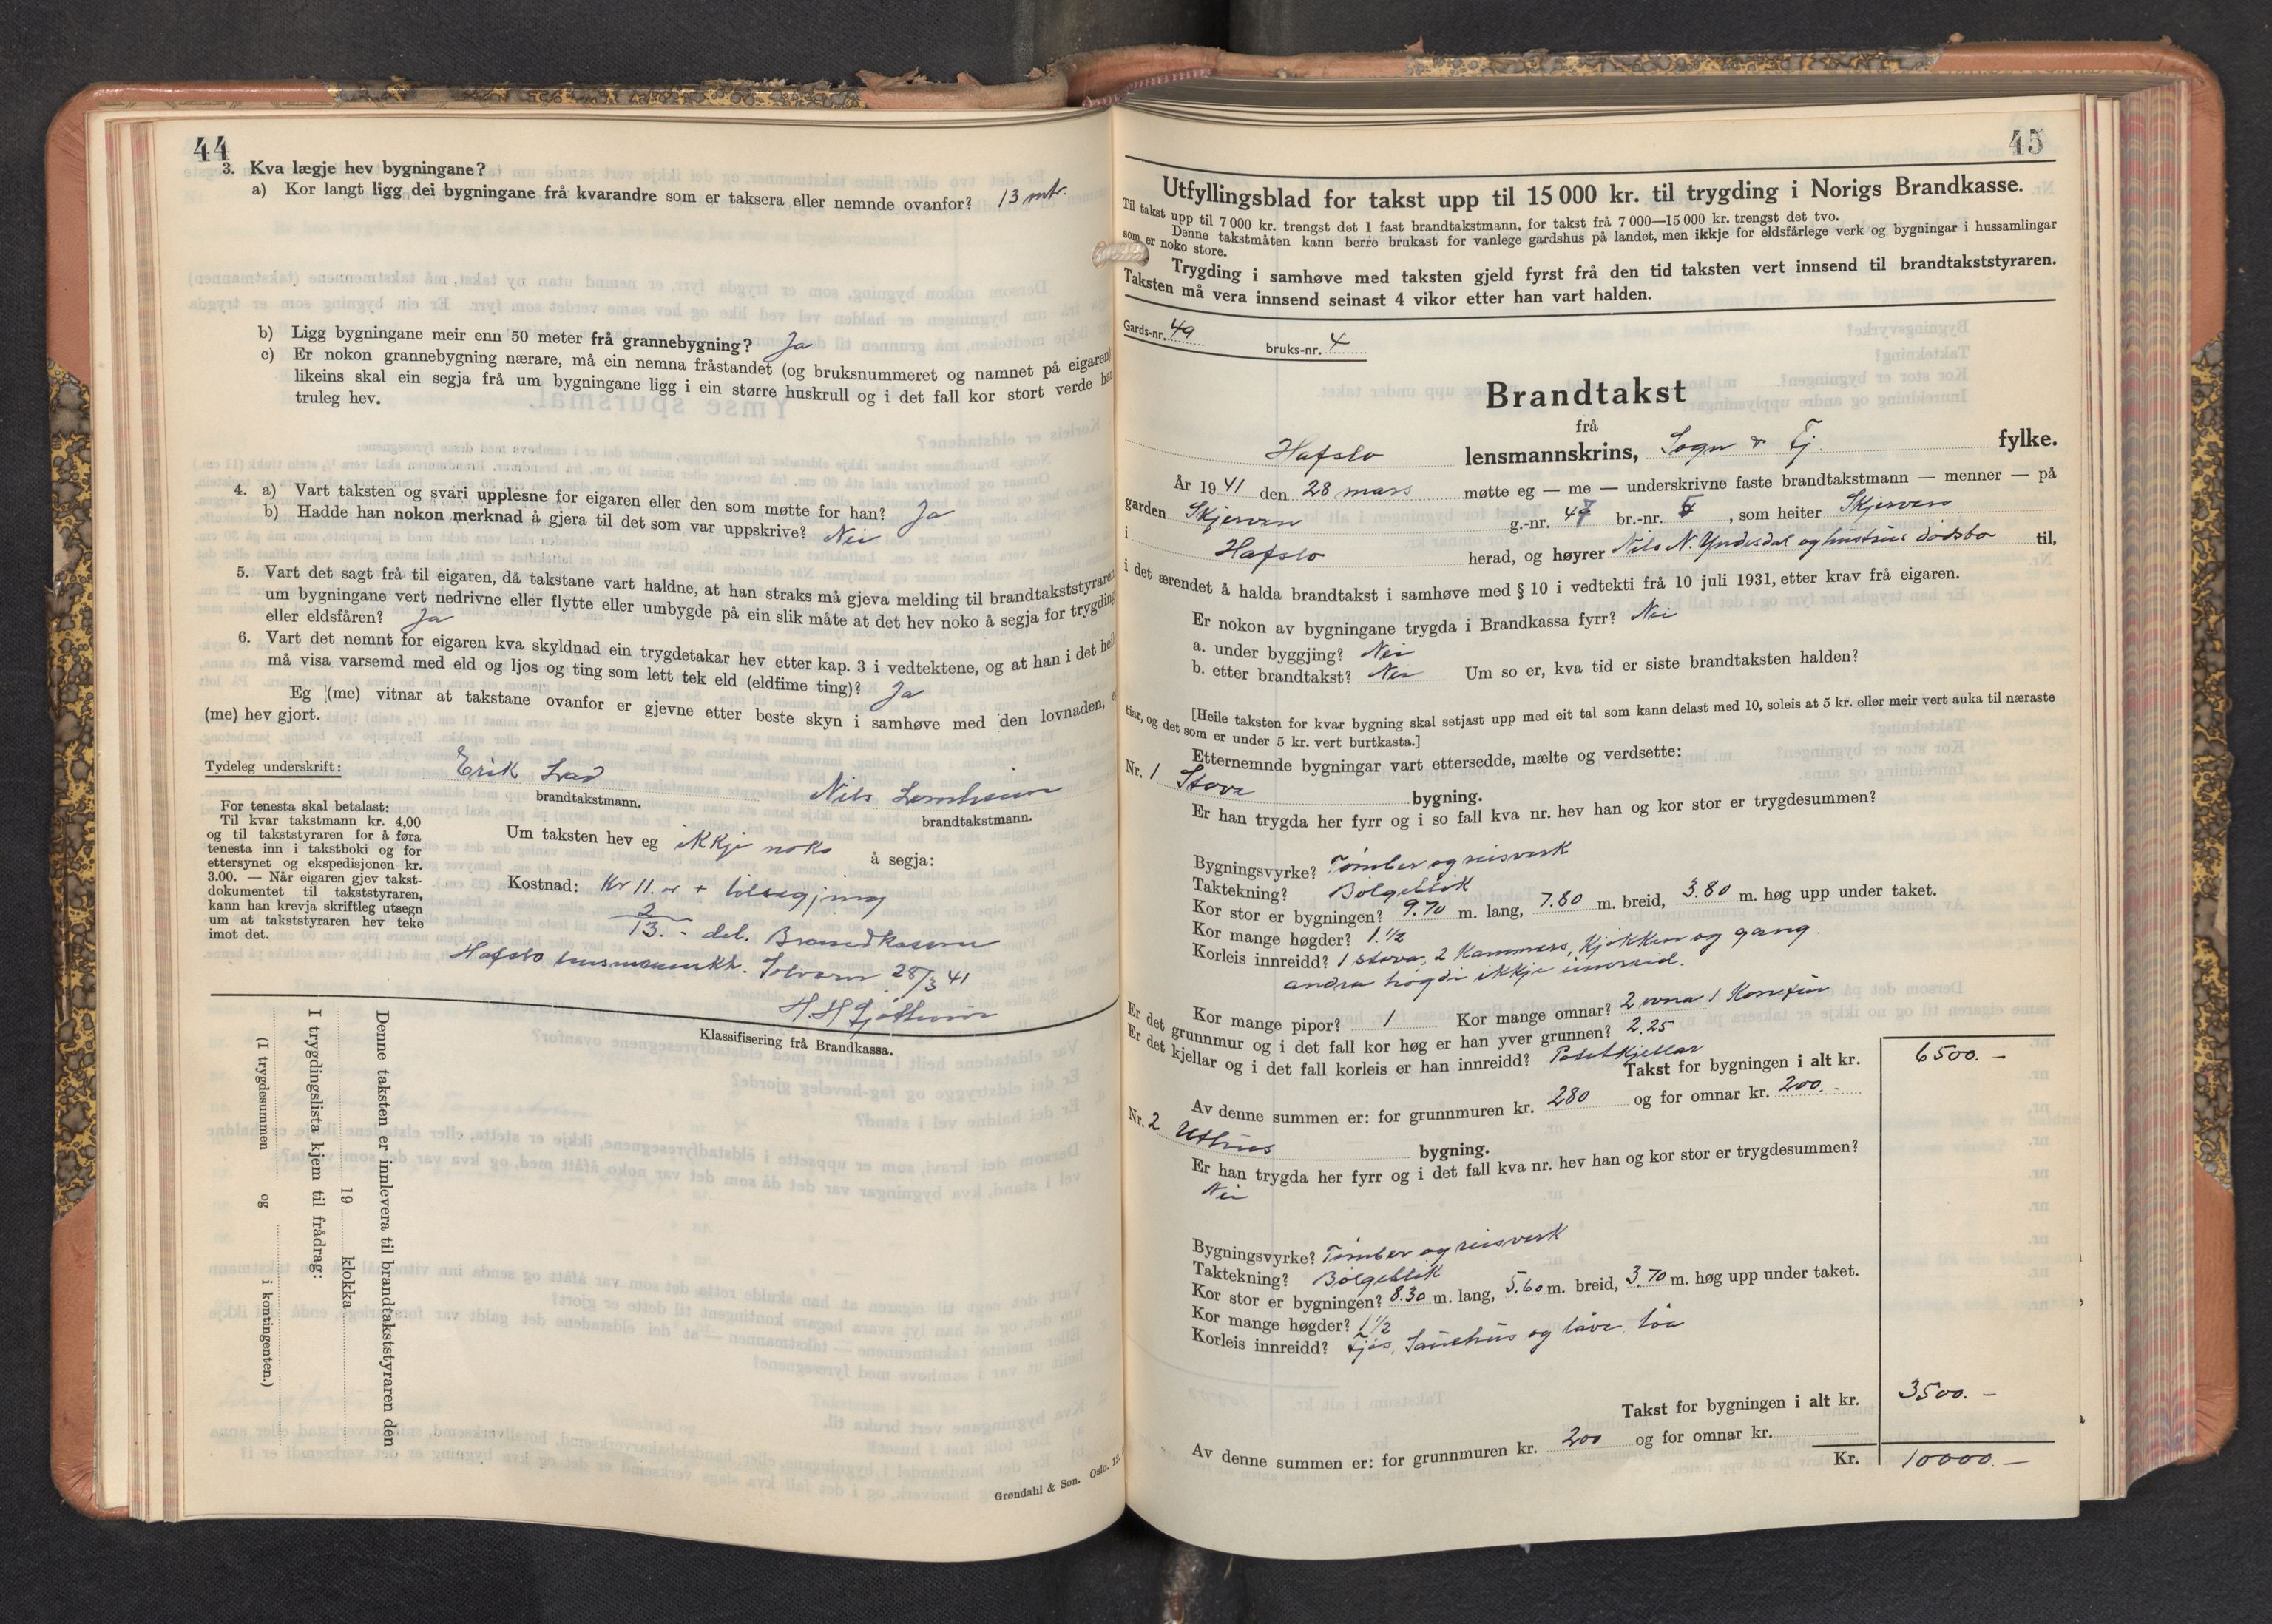 44
3. Kva lægje hev bygningane?
a) Kor langt ligg dei bygningane frå kvarandre som er taksera eller nemnde ovanfor? 13 mtr.
b) Ligg bygningane meir enn 50 meter frå grannebygning? Ja
c) Er nokon grannebygning nærare, må ein nemna fråstandet (og bruksnummeret og namnet på eigaren);
likeins skal ein segja frå um bygningane ligg i ein større huskrull og i det fall kor stort verde han
truleg hev.
4. a) Vart taksten og svari upplesne for eigaren eller den som møtte for han? Ja
b) Hadde han nokon merknad å gjera til det som var uppskrive? Nei
5. Vart det sagt frå til eigaren, då takstane vart haldne, at han straks må gjeva melding til brandtakststyraren
um bygningane vert nedrivne eller flytte eller umbygde på ein slik måte at det hev noko å segja for trygding
eller eldsfåren? Ja
6. Vart det nemnt for eigaren kva skyldnad ein trygdetakar hev etter kap. 3 i vedtektene, og at han i det heile
må visa varsemd med eld og ljos og ting som lett tek eld (eldfime ting)? Ja
Eg (me) vitnar at takstane ovanfor er gjevne etter beste skyn i samhøve med den lovnaden, e
(me) hev gjort.
Tydeleg underskrift: Erik Lad Nils
brandtakstmann. brandtakstmann.
For tenesta skal betalast:
Til kvar takstmann kr. 4,00
og til takststyraren for å føra
tenesta inn i takstboki og for
ettersynet og ekspedisjonen kr.
3.00. — Når eigaren gjev takst-
dokumentet til takststyraren,
kann han krevja skriftleg utsegn
um at takststyraren hev teke
imot det.
Um taksten hev eg ikkje noko å segja:
Kostnad: Kr 11.00 + tilsegjing
2
13. - del. Brandkassen
Hafslo lensmannskt. Solvorn 28/3 41
H H
Klassifisering frå Brandkassa.
Denne taksten er innlevera til brandtakststyraren den
19 klokka
I trygdingslista kjem til frådrag:
(I trygdesummen og i kontingenten.)
Grøndahl & Søn. Oslo. 12.
45
Utfyllingsblad for takst upp til 15 000 kr. til trygding i Norigs Brandkasse.
Til takst upp til 7 000 kr. trengst det 1 fast brandtakstmann, for takst frå 7 000—15 000 kr. trengst det tvo.
Denne takstmåten kann berre brukast for vanlege gardshus på landet, men ikkje for eldsfårlege verk og bygningar i hussamlingar
som er noko store.
Trygding i samhøve med taksten gjeld fyrst frå den tid taksten vert innsend til brandtakststyraren.
Taksten må vera innsend seinast 4 vikor etter han vart halden.
Gards-nr. 49 bruks-nr. 4
Brandtakst
frå
Hafslo lensmannskrins, Sogn & Fj. fylke.
År 1941 den 28 mars møtte eg — me — underskrivne faste brandtakstmann — menner — på
garden Skjerven g.-nr. 47 br.-nr. 5, som heiter Skjerven
i Hafslo herad, og høyrer Nils N. Yndesdal og hustrus dødsbo til,
i det ærendet å halda brandtakst i samhøve med § 10 i vedtekti frå 10 juli 1931, etter krav frå eigaren.
Er nokon av bygningane trygda i Brandkassa fyrr? Nei
a. under byggjing? Nei
b. etter brandtakst? Nei Um so er, kva tid er siste brandtaksten halden?
[Heile taksten for kvar bygning skal setjast upp med eit tal som kann delast med 10, soleis at 5 kr. eller meir vert auka til næraste
tiar, og det som er under 5 kr. vert burtkasta.]
Etternemnde bygningar vart ettersedde, mælte og verdsette:
Nr. 1 Stove bygning.
Er han trygda her fyrr og i so fall kva nr. hev han og kor stor er trygdesummen?
Bygningsvyrke? Tømber og reisverk
Taktekning? Bølgeblik
Kor stor er bygningen? 9.70 m. lang, 7.80 m. breid, 3.80 m. høg upp under taket.
Kor mange høgder? 1.1/2
Korleis innreidd? 1 stova, 2 Kammers, Kjøkken og gang.
andra høgdi ikkje innreid.
Kor mange pipor? 1 Kor mange omnar? 2 ovna 1 Komfür
Er det grunnmur og i det fall kor høg er han yver grunnen? 2.25
Er det kjellar og i det fall korleis er han innreidd? Potetkjellar
Takst for bygningen i alt kr. 6500.—
Av denne summen er: for grunnmuren kr. 280 og for omnar kr. 200.-
Nr. 2 Uthus bygning.
Er han trygda her fyrr og i det fall kva nr. hev han og kor stor er trygdesummen?
Nei
Bygningsvyrke? Tømber og reisverk
Taktekning? Bølgeblik
Kor stor er bygningen? 8.30 m. lang, 5.60 m. breid, 3.70 m. høg upp under taket.
Kor mange høgder? 1 1/2
Korleis innreidd? Fjøs, Sauehus og løve, løa
Takst for bygningen i alt kr. 3500.—
Av denne summen er: for grunnmuren kr. 200 og for omnar kr.
Kr. 10000.—